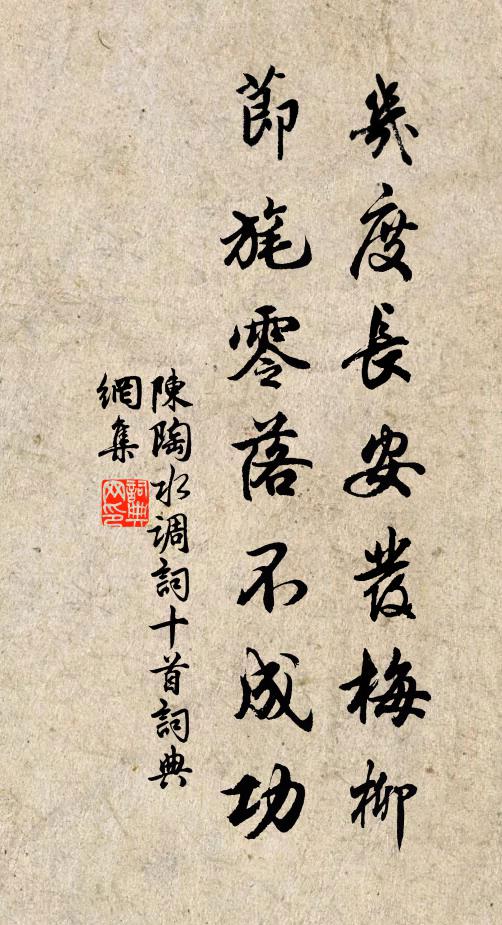 幾度長安發梅柳
節旄零落不成功
陳陶水调詞十首詞典
網集
詞典
网印